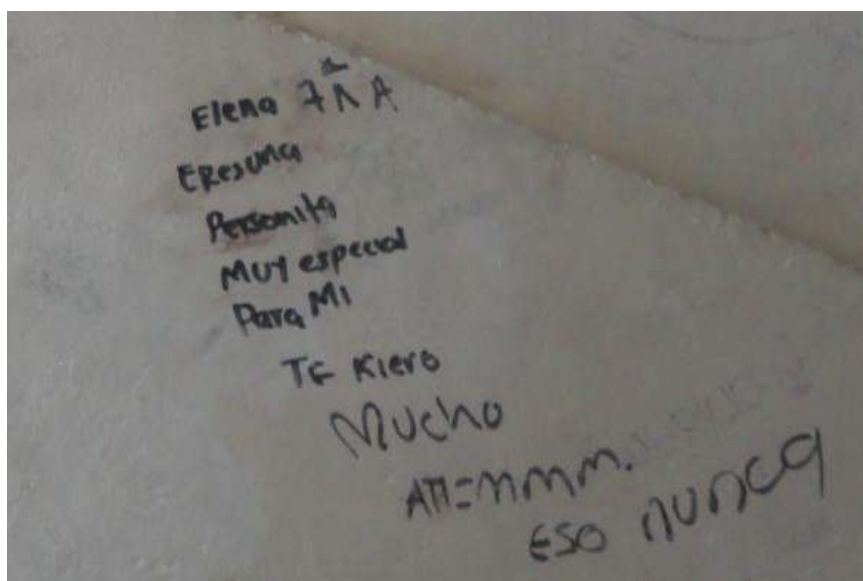 Elena 7 A
ERes una
Personita
MUY especial
Para MI
TE Kiero
Mucho
ATT=mmm.
ESO nunca